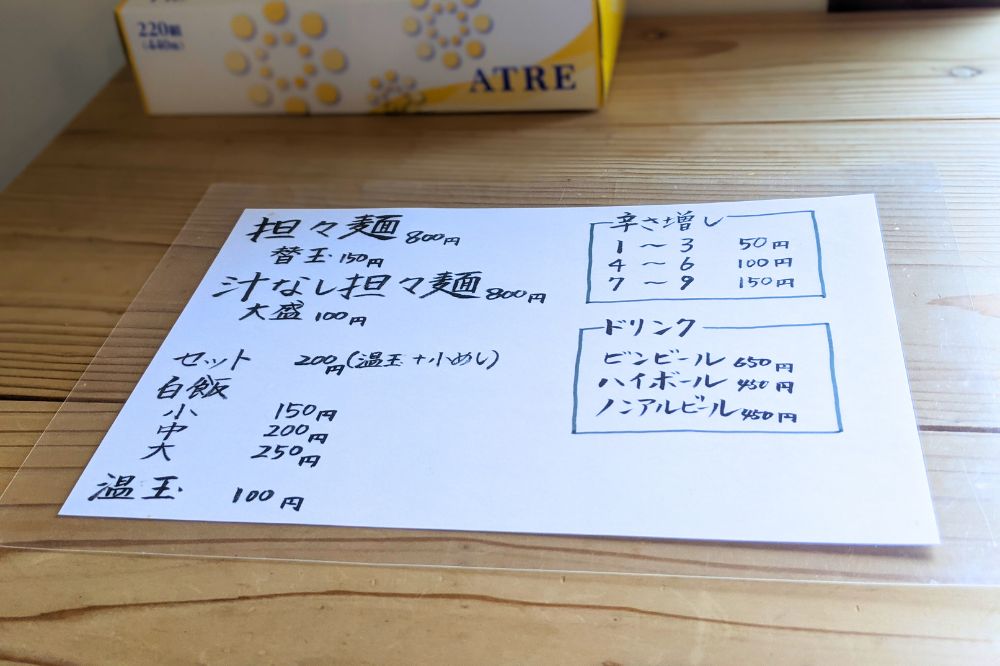 220組
(440枚)
ATRE
担々麺 800円
替玉 150円
汁なし担々麺 800円
大盛 100円
セット 200円(温玉+小めし)
白飯
小 150円
中 200円
大 250円
温玉 100円
辛さ増し
1 〜 3 50円
4 〜 6 100円
7 〜 9 150円
ドリンク
ビンビール 650円
ハイボール 450円
ノンアルビール 450円